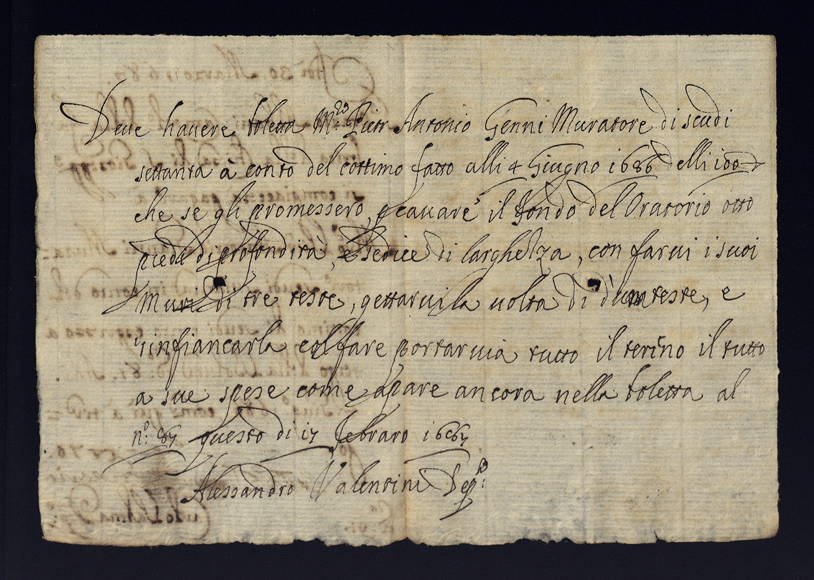 Deve havere boletta M.ro Pietr Antonio Genni Muratore di scudi
settanta à conto del cottimo fatto alli 4 Giugno 1686 delli 100
che se gli promessero, p cavare il fondo del Oratorio otto
piedi di profondita, e sedice di larghezza, con farui i suoi
Muri di tre teste, gettarui la uolta di d'una teste, e
rinfiancarla col fare portar uia tutto il tereno il tutto
a sue spese come apare ancora nella boletta al
n.o 67 questo di 17 febraro 1687
Alessandro Valentini Seg.rio